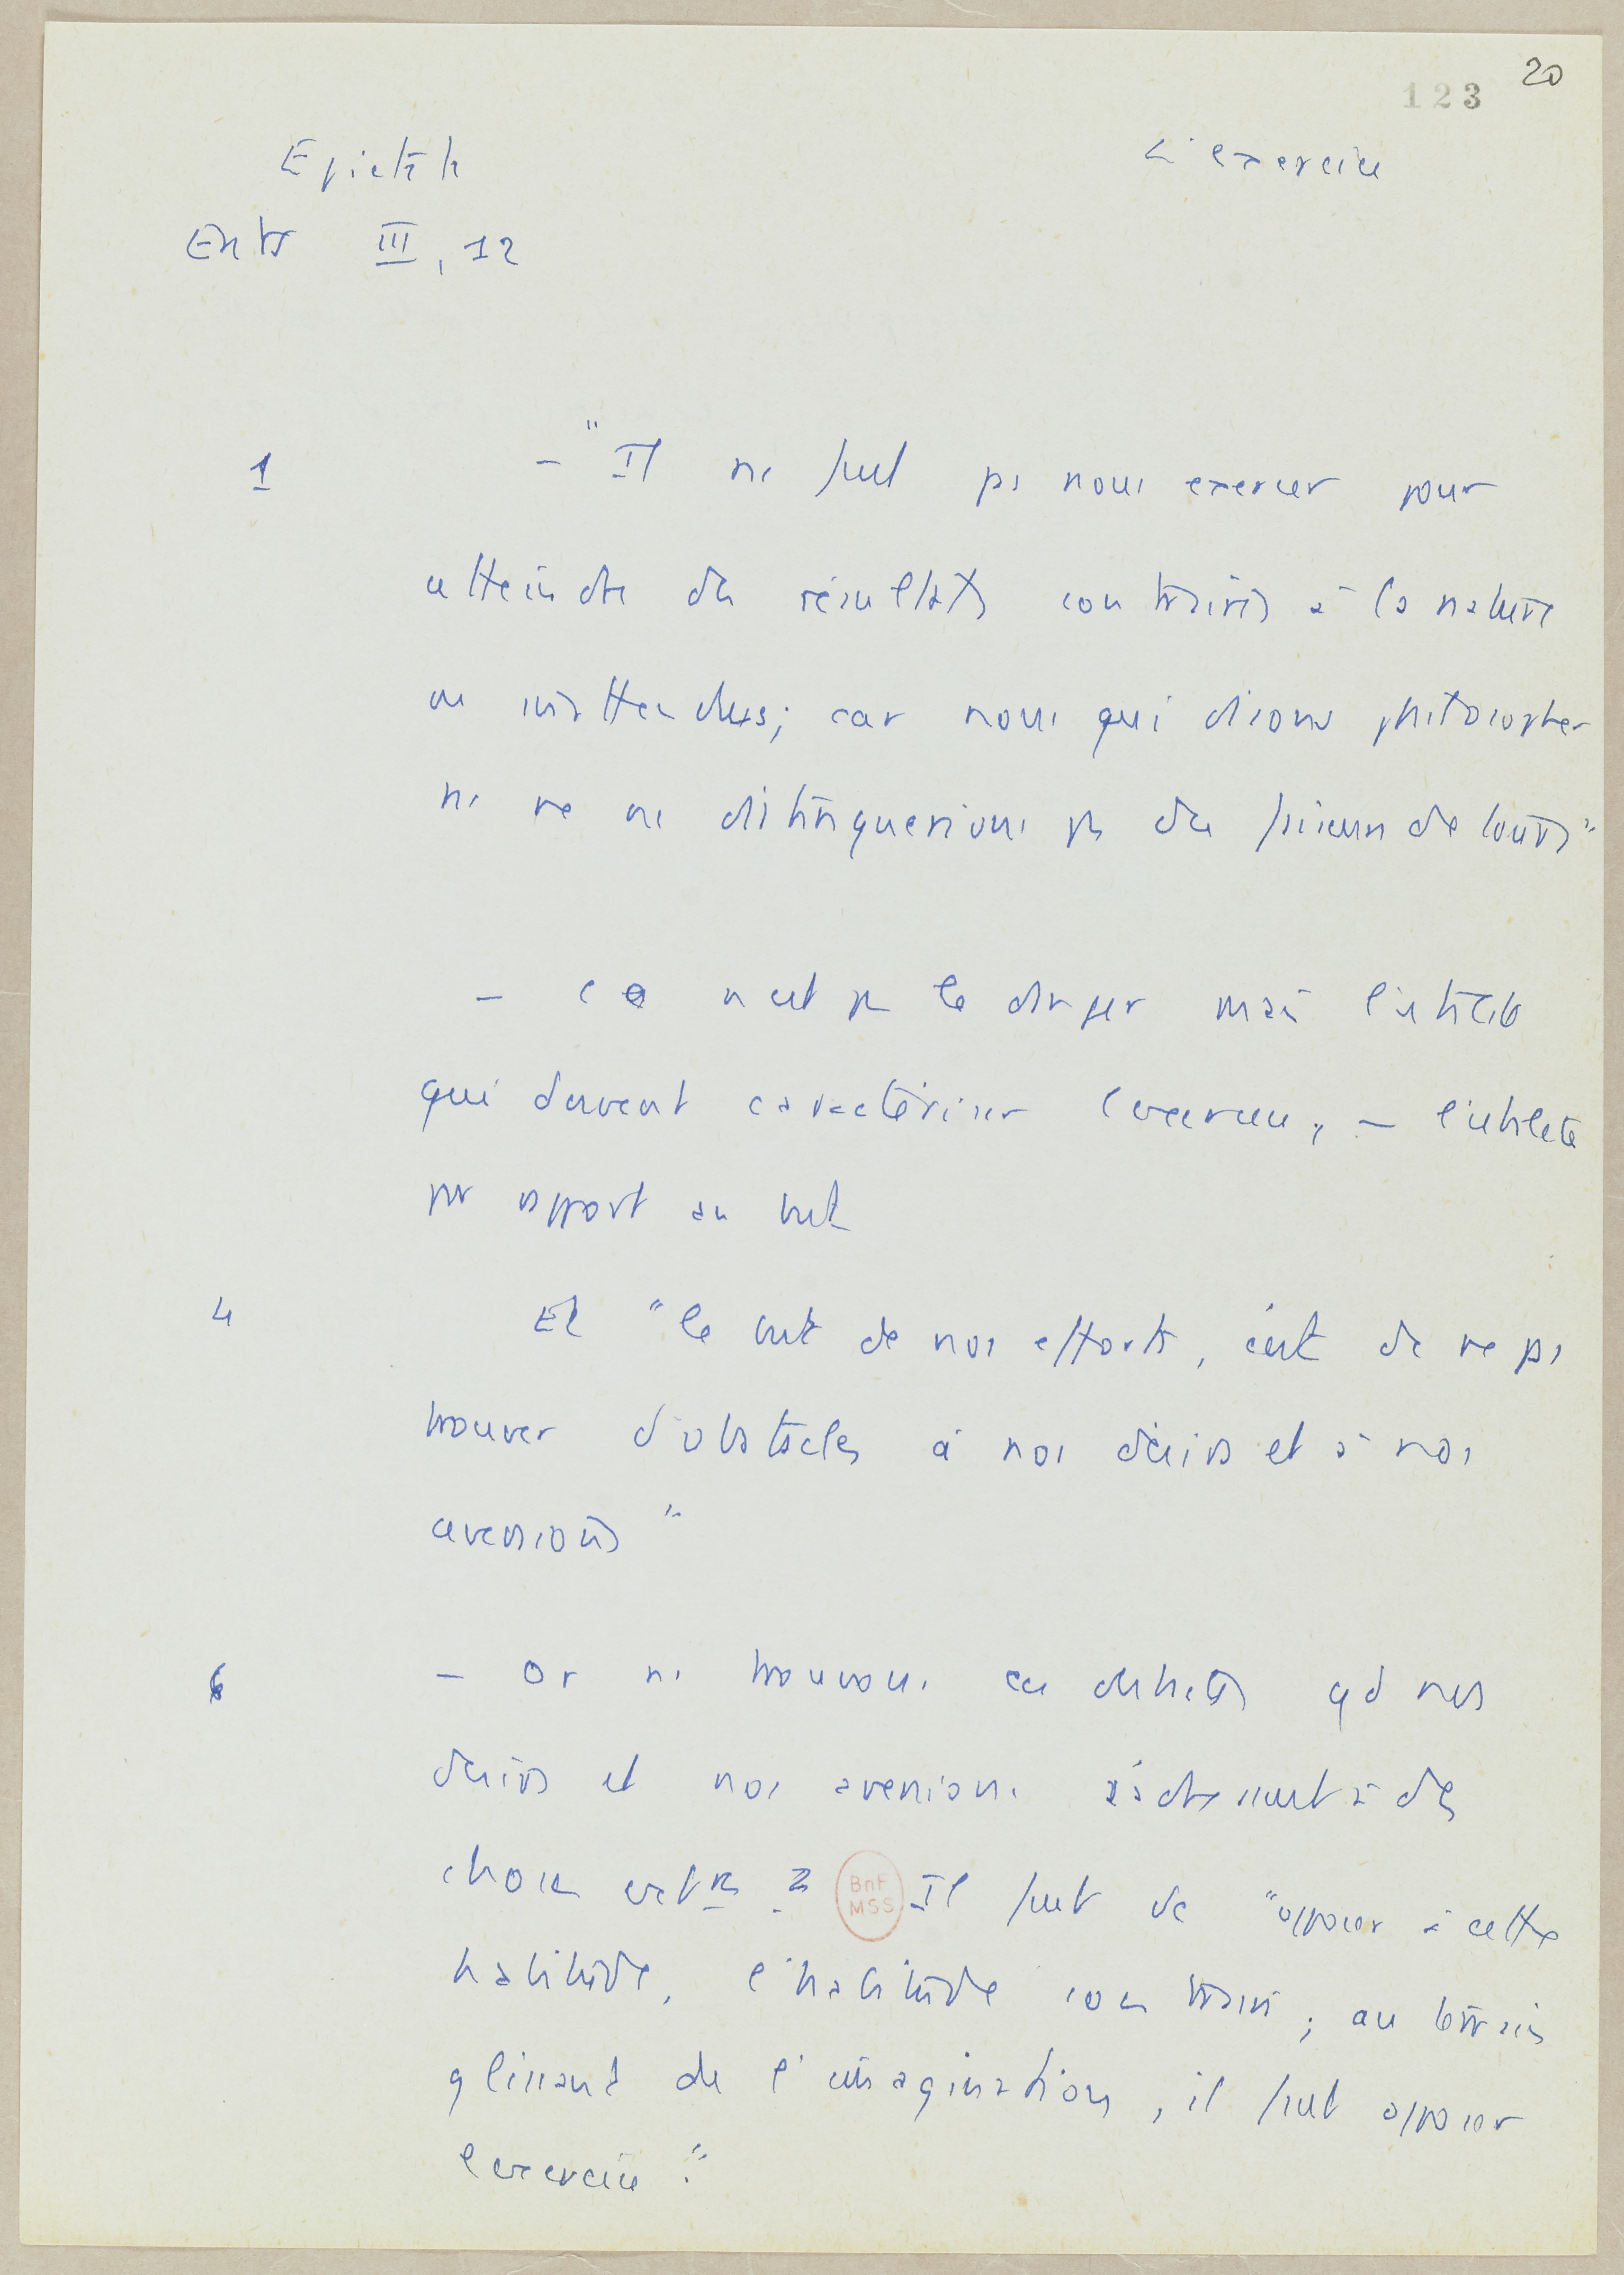 20
123
Epictète
L'exercice
Entr III, 12
1 – "Il ne faut pas nous exercer pour
atteindre des résultats contraires à la nature
ou inattendus; car nous qui disons philosopher
ns ne ns distinguerions pas des faiseurs de tours"
– ce n'est pas le danger mais l'utilité
qui doivent caractériser l'exercice, – l'utilité
par rapport au but
4 Et "le but de nos efforts, c'est de ne pas
trouver d'obstacles à nos désirs et à nos
aversions"
6 – Or ns trouvons ces obstacles qd nos
désirs et nos aversions s'adressent à des
choses extres. Il faut de "opposer à cette
habitude, l'habitude contraire; au terrain
glissant de l'imagination, il faut opposer
l'exercice."
BnF
MSS